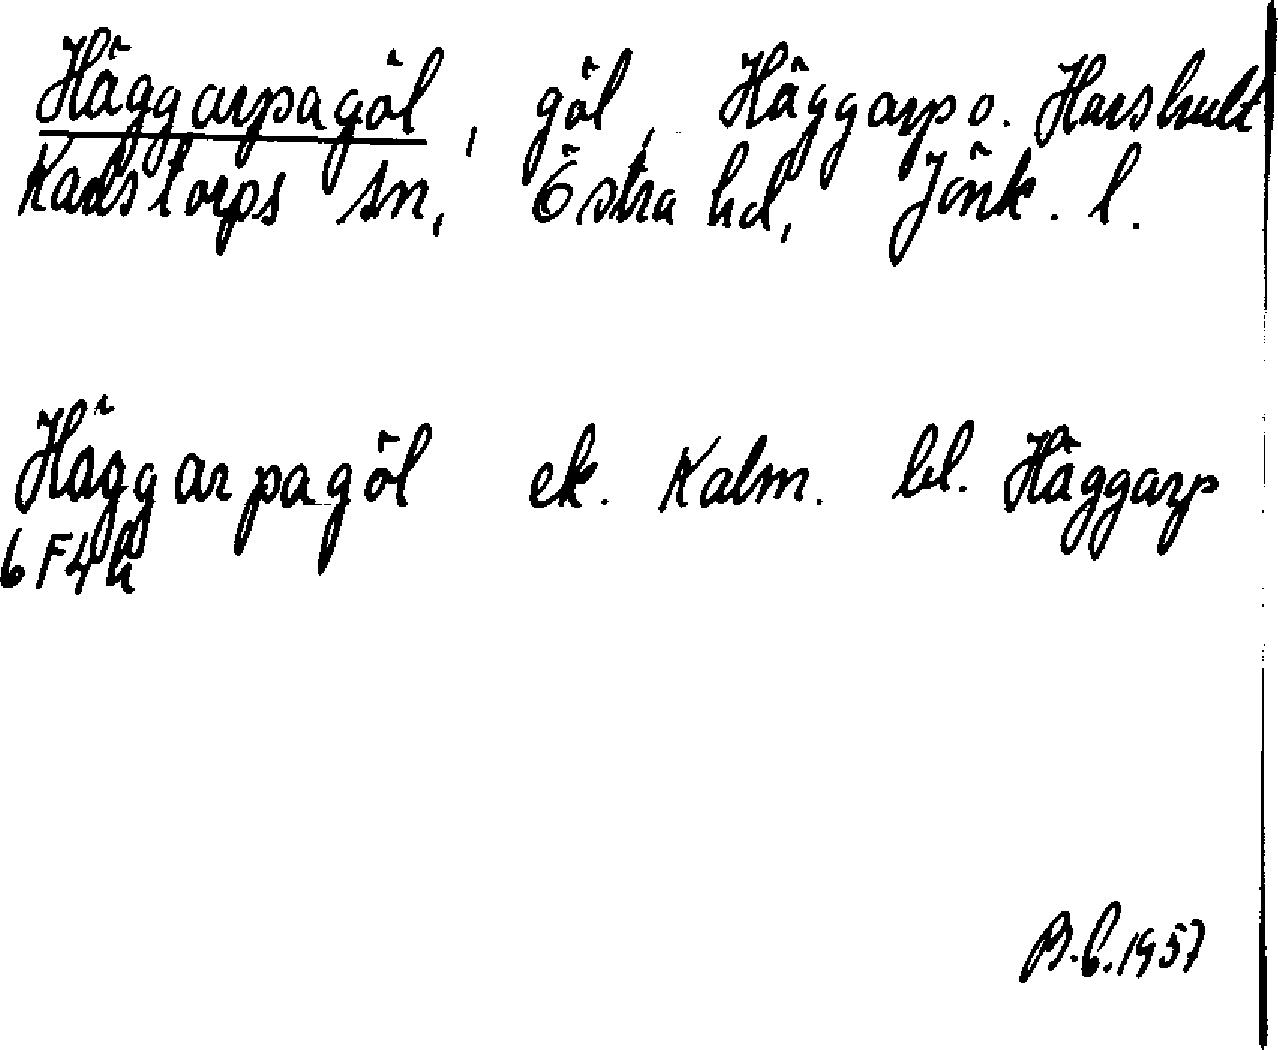 Häggarpagöl, göl, Häggarp o. Harshult
Karlstorps sn, Östra hd, Jönk. l.
Häggarpagöl ek. Kalm. bl. Häggarp
6F4h
B.L.1957